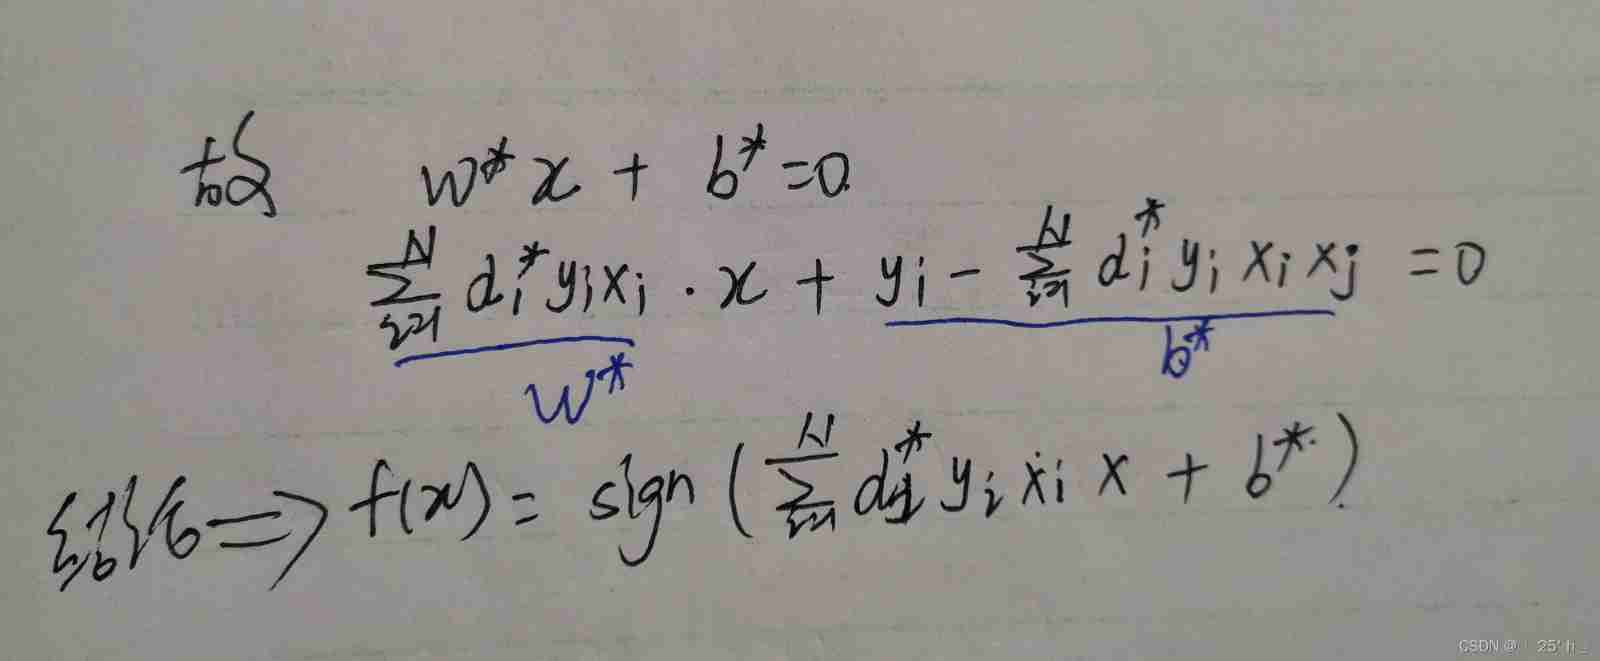 故 w* x + b* = 0
∑_{i=1}^{N} α_i^* y_i x_i · x + y_i - ∑_{i=1}^{N} α_i^* y_i x_i x_j = 0
w* b*
结论 ⇒ f(x) = sign ( ∑_{i=1}^{N} α_i^* y_i x_i x + b* )
CSDN @